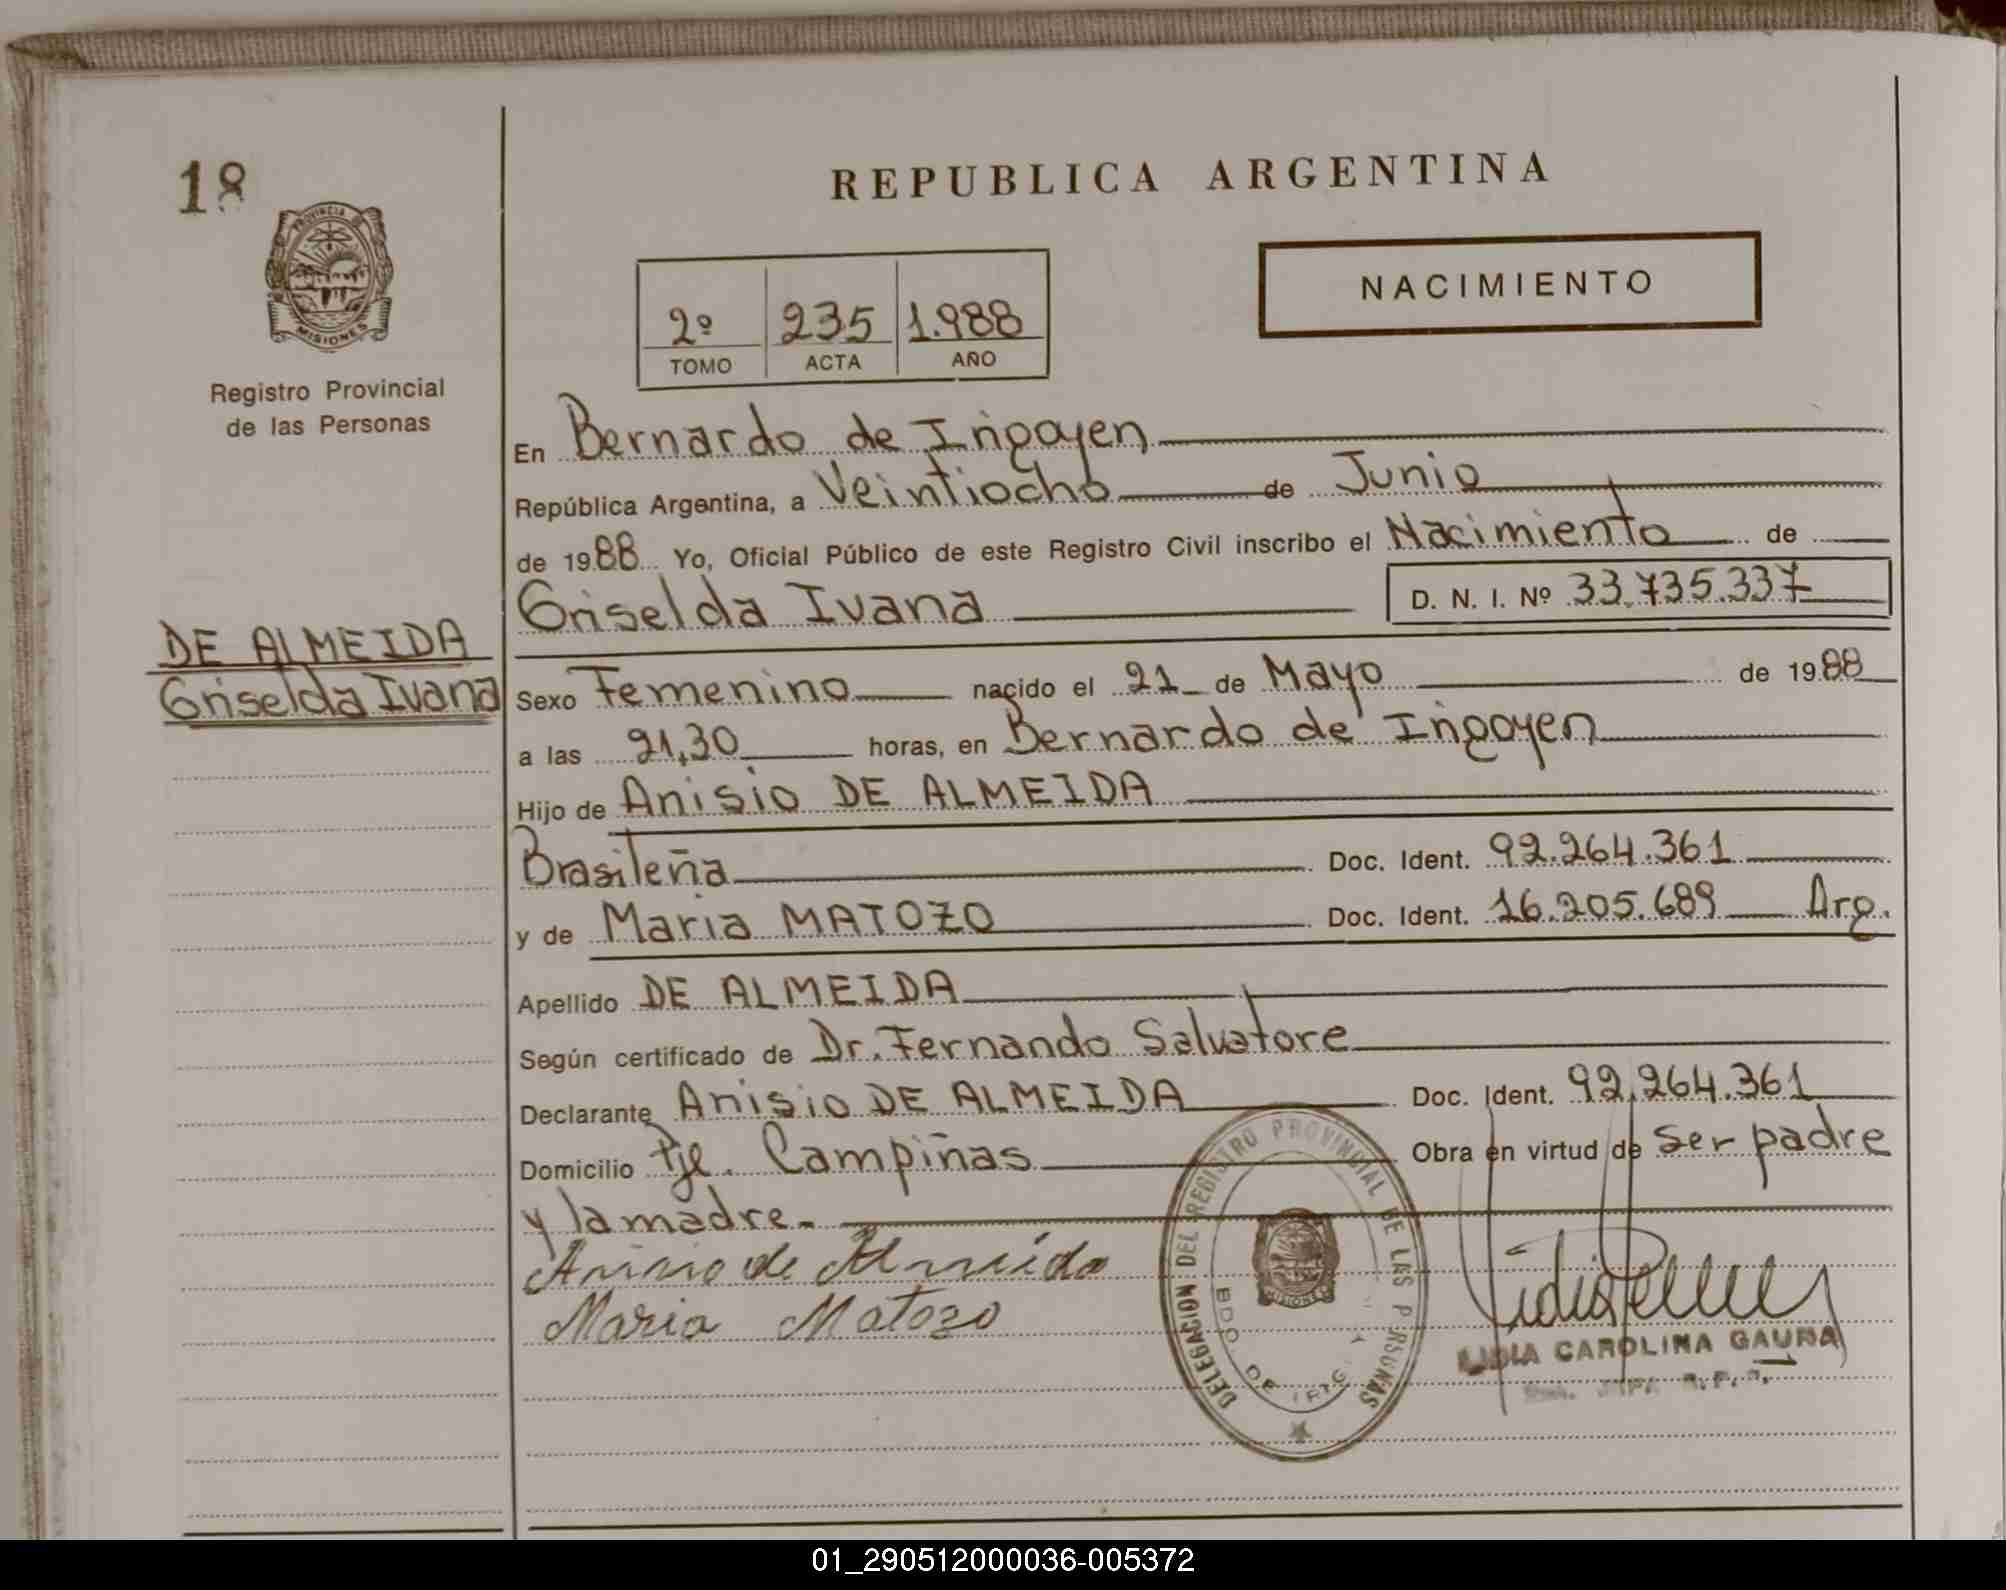 18
REPUBLICA ARGENTINA
PROVINCIA DE
MISIONES
NACIMIENTO
2º 235 1.988
TOMO ACTA AÑO
Registro Provincial
de las Personas
En Bernardo de Irigoyen
República Argentina, a Veintiocho de Junio
de 1988 Yo, Oficial Público de este Registro Civil inscribo el Nacimiento de
Griselda Ivana D. N. I. Nº 33.735.337
DE ALMEIDA
Griselda Ivana
Sexo Femenino nacido el 21 de Mayo de 1988
a las 21,30 horas, en Bernardo de Irigoyen
Hijo de Anisio DE ALMEIDA
Brasileña Doc. Ident. 92.264.361
y de Maria MATOZO Doc. Ident. 16.205.689 Arg.
Apellido DE ALMEIDA
Según certificado de Dr. Fernando Salvatore
Declarante Anisio DE ALMEIDA Doc. Ident. 92.264.361
Domicilio Pje. Campiñas Obra en virtud de ser padre
y la madre.
Anisio de Almeida
Maria Matozo
DELEGACION DEL REGISTRO PROVINCIAL DE LAS PERSONAS
BDO. DE IRIGOYEN
MISIONES
LIDIA CAROLINA GAUNA
R.P.P.
01_290512000036-005372